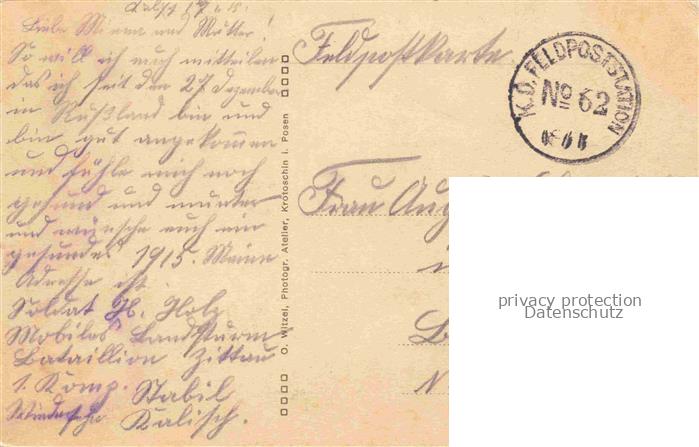 Kalisch
Liebe Minna und Mutter!
So will ich euch mitteilen
das ich seit den 27 Dezember
in Rußland bin und
bin gut angekommen
und fühle mich noch
gesund und munter
und wünsche euch ein
gesundes 1915. Meine
Adresse ist
Soldat H. Holz
Mobiles Landsturm
Bataillion Zittau
1. Komp. Stabil
Kalisch.
O. Witzel, Photogr. Atelier, Krotoschin i. Posen
Feldpostkarte
K.D. FELDPOSTSTATION
No 62
Frau Aug
privacy protection
Datenschutz